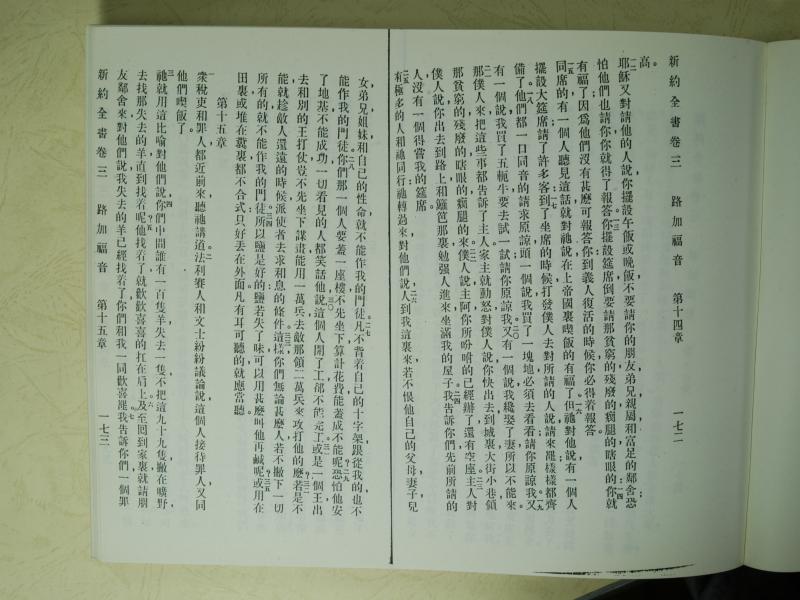 新約全書卷三　路加福音　第十四章　一七二
高。
耶穌又對請他的人說你擺設午飯或晚飯不要請你的朋友弟兄親屬和富足的鄰舍恐
怕他們也請你你就得了報答你擺設筵席倒要請那貧窮的殘廢的瘸腿的瞎眼的你就
有福了因爲他們沒有甚麼可報答你到義人復活的時候你必得着報答
同席的有一個人聽見這話就對祂說在上帝國裏喫飯的有福了但祂對他說有一個人
擺設大筵席請了許多客到了坐席的時候打發僕人去對所請的人說請來罷樣樣都齊
備了他們都一口同音的請求原諒頭一個說我買了一塊地必須去看看請你原諒我又
有一個說我買了五軛牛要去試一試請你原諒我又有一個說我纔娶了妻所以不能來
那僕人來把這些事都告訴了主人家主就動怒對僕人說你快出去到城裏大街小巷領
那貧窮的殘廢的瞎眼的瘸腿的來僕人說主阿你所吩咐的已經辦了還有空座主人對
僕人說你出去到路上和籬笆那裏勉强人進來坐滿我的屋子我告訴你們先前所請的
人沒有一個得嘗我的筵席
有極多的人和祂同行祂轉過來對他們說人到我這裏來若不恨他自己的父母妻子兒
女弟兄姐妹和自己的性命就不能作我的門徒凡不背着自己的十字架跟從我的也不
能作我的門徒你們那一個人要蓋一座樓不先坐下算計花費能蓋成不能呢恐怕他安
了地基不能成功一切看見的人都笑話他說這個人開了工却不能完工或是一個王出
去和別的王打仗豈不先坐下謀畫能用一萬兵去敵那領二萬兵來攻打他的麽若是不
能就趁敵人還遠的時候派使者去求和息的條件這樣你們無論甚麼人若不撇下一切
所有的就不能作我的門徒所以鹽是好的鹽若失了味可以用甚麼叫他再鹹呢或用在
田裏或堆在糞裏都不合式只好丟在外面凡有耳可聽的就應當聽
第十五章
衆稅吏和罪人都近前來聽祂講道法利賽人和文士紛紛議論說這個人接待罪人又同
他們喫飯了
祂就用這比喻對他們說你們中間誰有一百隻羊失去一隻不把這九十九隻撇在曠野
去找那失去的羊直到找着呢他找着了就歡歡喜喜的扛在肩上及至囘到家裏就請朋
友鄰舍來對他們說我失去的羊已經找着了你們和我一同歡喜罷我告訴你們一個罪
新約全書卷三　路加福音　第十五章　一七三